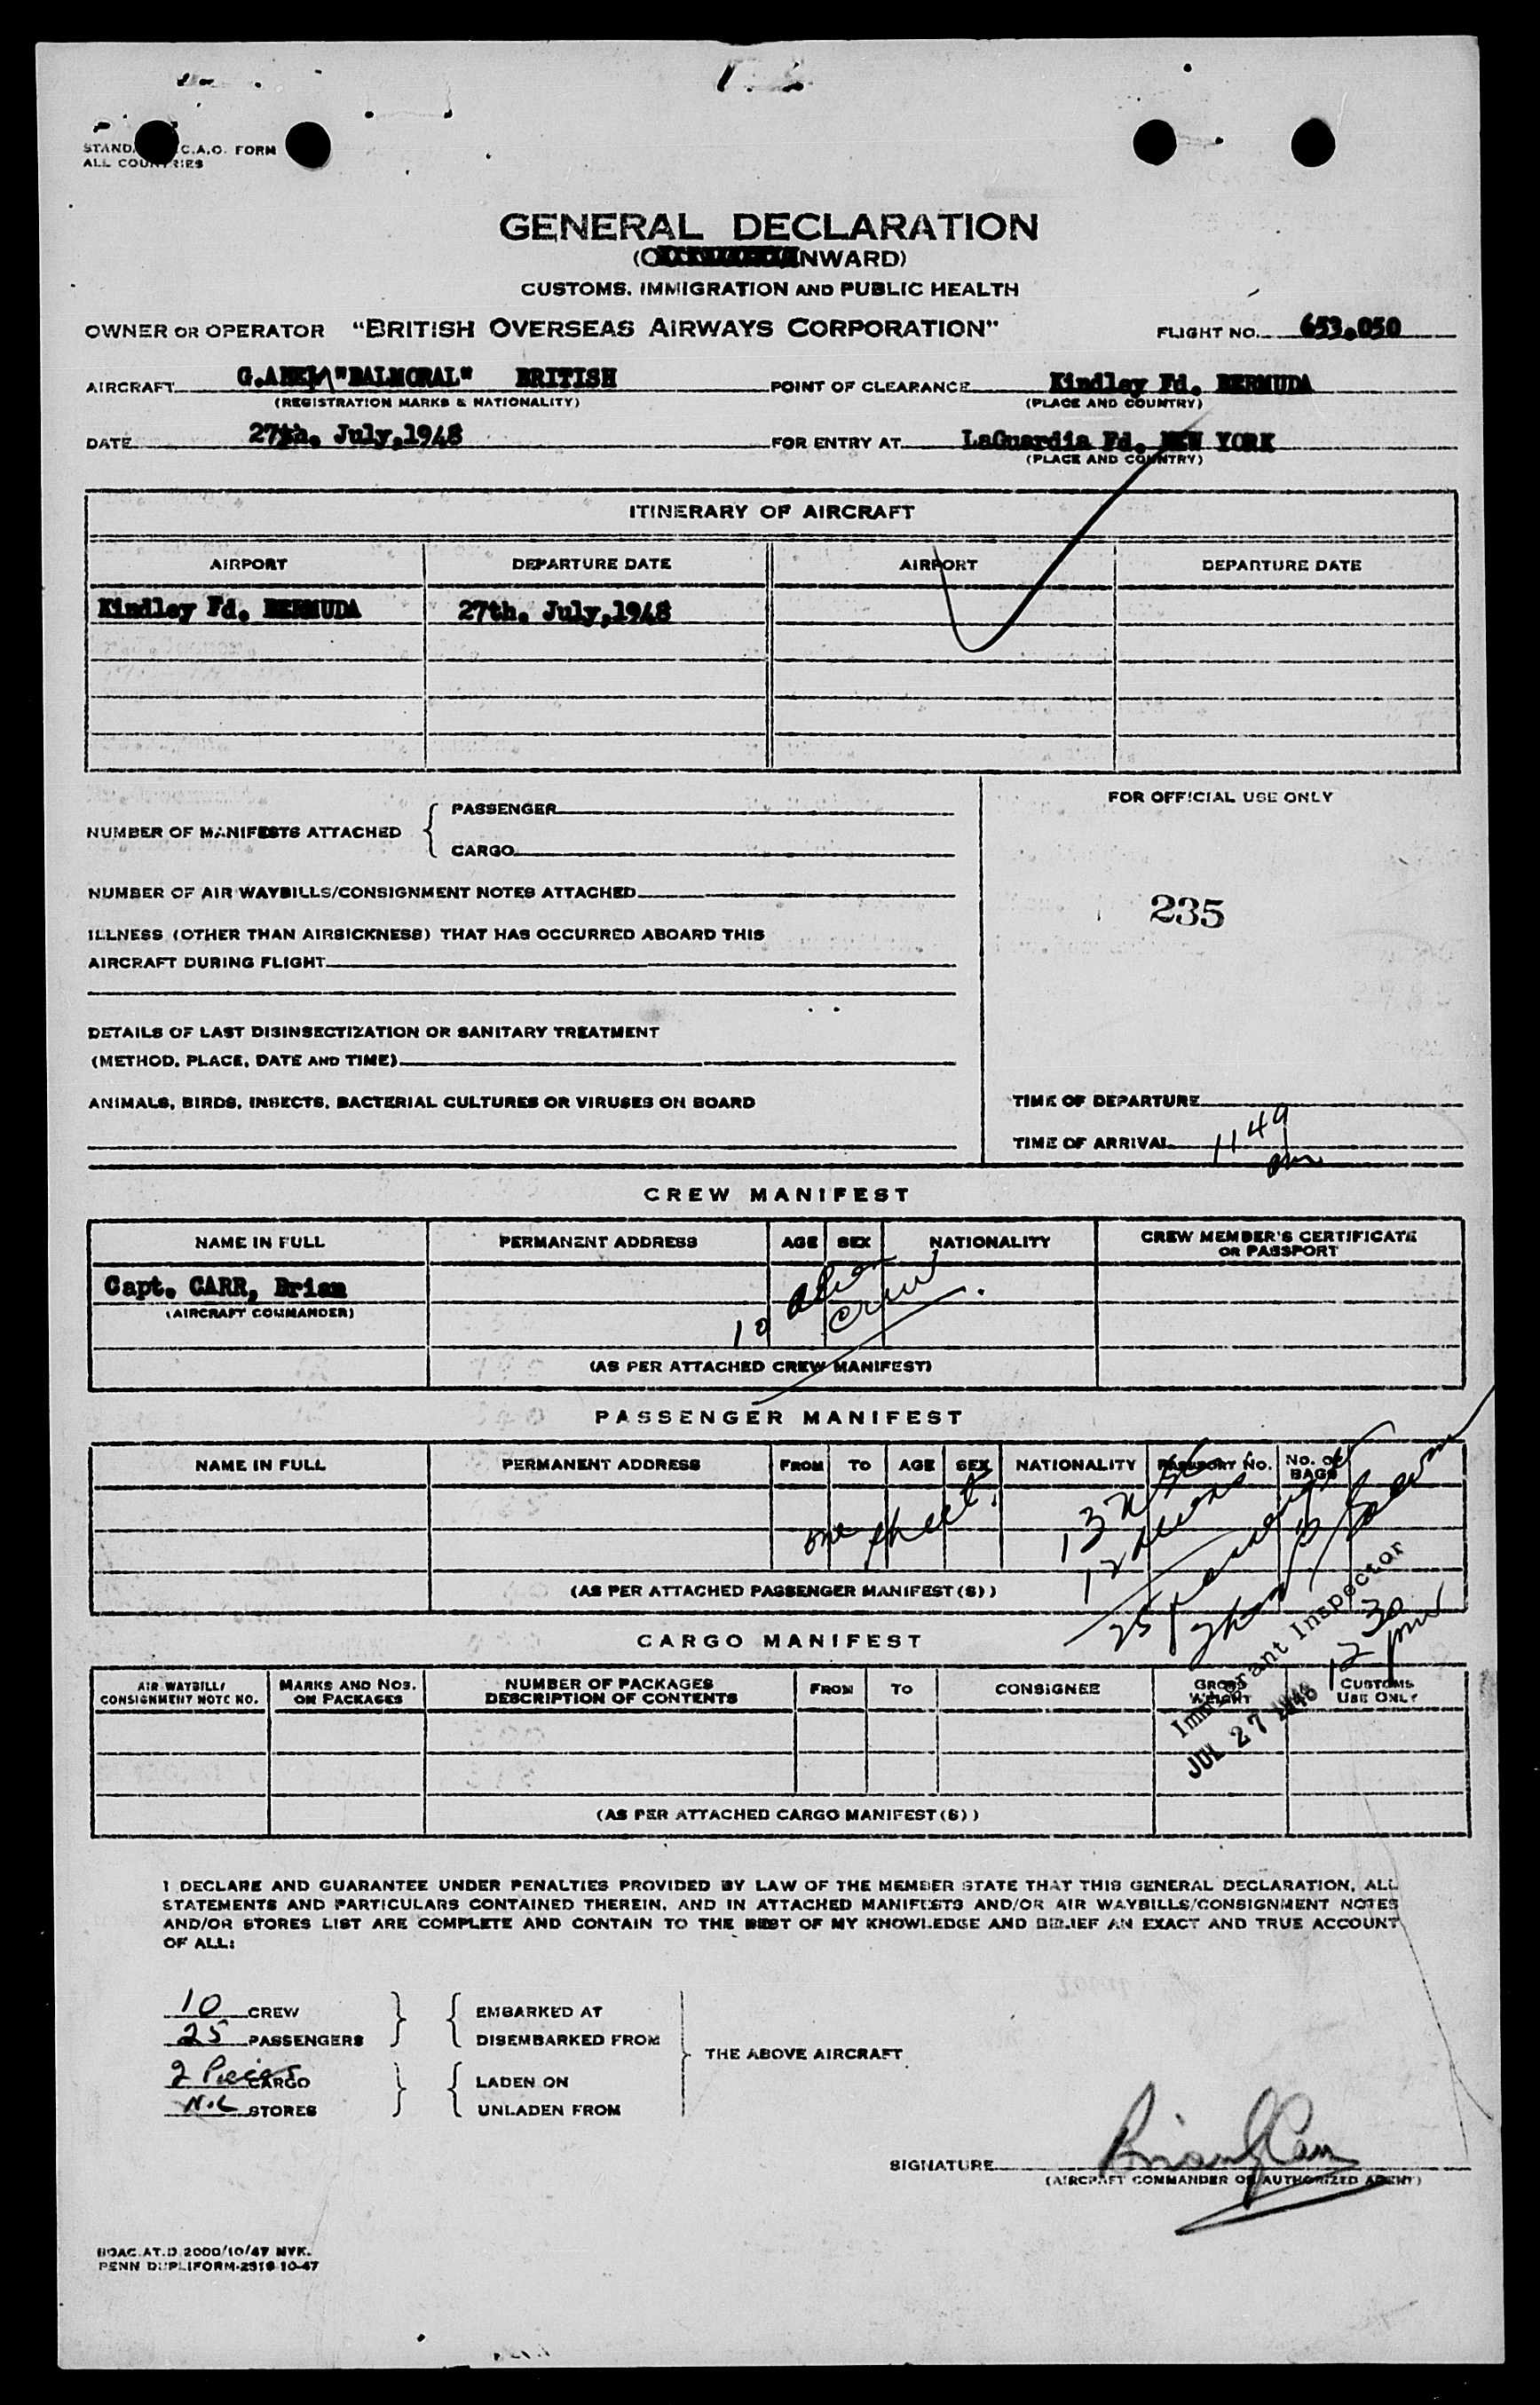 C.A.O. FORM
ALL COUNTRIES
GENERAL DECLARATION
NWARD)
CUSTOMS, IMMIGRATION AND PUBLIC HEALTH
OWNER OR OPERATOR "BRITISH OVERSEAS AIRWAYS CORPORATION" FLIGHT NO. 653.050
AIRCRAFT "BALMORAL" BRITISH POINT OF CLEARANCE Kindley Fd. BERMUDA
(REGISTRATION MARKS & NATIONALITY) (PLACE AND COUNTRY)
DATE 27th. July,1948 FOR ENTRY AT LaGuardia Fd. NEW YORK
(PLACE AND COUNTRY)
ITINERARY OF AIRCRAFT
AIRPORT DEPARTURE DATE AIRPORT DEPARTURE DATE
Kindley Fd. BERMUDA 27th. July,1948
FOR OFFICIAL USE ONLY
NUMBER OF MANIFESTS ATTACHED { PASSENGER
CARGO
NUMBER OF AIR WAYBILLS/CONSIGNMENT NOTES ATTACHED
235
ILLNESS (OTHER THAN AIRSICKNESS) THAT HAS OCCURRED ABOARD THIS
AIRCRAFT DURING FLIGHT
DETAILS OF LAST DISINSECTIZATION OR SANITARY TREATMENT
(METHOD, PLACE, DATE AND TIME)
ANIMALS, BIRDS, INSECTS, BACTERIAL CULTURES OR VIRUSES ON BOARD
TIME OF DEPARTURE
TIME OF ARRIVAL 11 49 am
CREW MANIFEST
NAME IN FULL PERMANENT ADDRESS AGE SEX NATIONALITY CREW MEMBER'S CERTIFICATE
OR PASSPORT
Capt. CARR, Brian
(AIRCRAFT COMMANDER)
10 alien crew
(AS PER ATTACHED CREW MANIFEST)
PASSENGER MANIFEST
NAME IN FULL PERMANENT ADDRESS FROM TO AGE SEX NATIONALITY PASSPORT NO. NO. OF
BAGS
one sheet. 13
12 aliens
25 passengers
(AS PER ATTACHED PASSENGER MANIFEST(S))
Immigrant Inspector
12 30 pm
JUL 27 1948
CARGO MANIFEST
AIR WAYBILL/
CONSIGNMENT NOTE NO. MARKS AND NOS.
ON PACKAGES NUMBER OF PACKAGES
DESCRIPTION OF CONTENTS FROM TO CONSIGNEE GROSS
WEIGHT CUSTOMS
USE ONLY
(AS PER ATTACHED CARGO MANIFEST(S))
I DECLARE AND GUARANTEE UNDER PENALTIES PROVIDED BY LAW OF THE MEMBER STATE THAT THIS GENERAL DECLARATION, ALL
STATEMENTS AND PARTICULARS CONTAINED THEREIN, AND IN ATTACHED MANIFESTS AND/OR AIR WAYBILLS/CONSIGNMENT NOTES
AND/OR STORES LIST ARE COMPLETE AND CONTAIN TO THE BEST OF MY KNOWLEDGE AND BELIEF AN EXACT AND TRUE ACCOUNT
OF ALL:
10 CREW } { EMBARKED AT
25 PASSENGERS DISEMBARKED FROM
THE ABOVE AIRCRAFT
2 Pieces CARGO } { LADEN ON
NIL STORES UNLADEN FROM
SIGNATURE Brian Carr
(AIRCRAFT COMMANDER OR AUTHORIZED AGENT)
BOAC.AT.D 2000/10/47 NYK.
PENN DUPLIFORM-2516 10-47